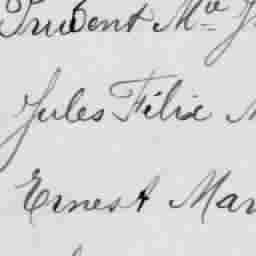 Prudent Mce J
Jules Félix M
Ernest Mar